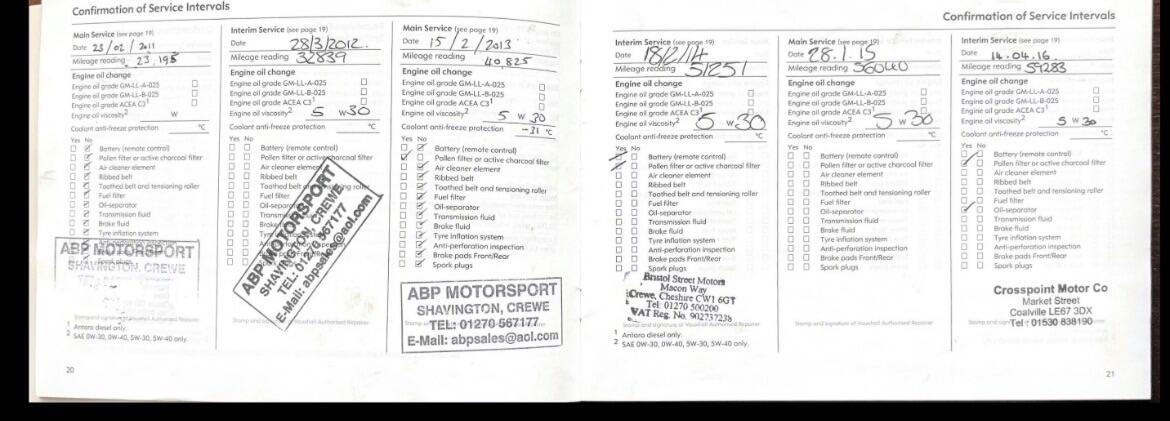 Confirmation of Service Intervals
Main Service (see page 19)
Date 23/02/2011
Mileage reading 23,195
Engine oil change
Engine oil grade GM-LL-A-025
Engine oil grade GM-LL-B-025
Engine oil grade ACEA C3¹
Engine oil viscosity² W
Coolant anti-freeze protection °C
Yes No
Battery (remote control)
Pollen filter or active charcoal filter
Air cleaner element
Ribbed belt
Toothed belt and tensioning roller
Fuel filter
Oil-separator
Transmission fluid
Brake fluid
Tyre inflation system
ABP MOTORSPORT
SHAVINGTON, CREWE
Stamp and signature of Vauxhall Authorised Repairer
1 Antara diesel only.
2 SAE 0W-30, 0W-40, 5W-30, 5W-40 only.
20
Interim Service (see page 19)
Date 28/3/2012.
Mileage reading 32839
Engine oil change
Engine oil grade GM-LL-A-025
Engine oil grade GM-LL-B-025
Engine oil grade ACEA C3¹
Engine oil viscosity² 5 W30
Coolant anti-freeze protection °C
Yes No
Battery (remote control)
Pollen filter or active charcoal filter
Air cleaner element
Ribbed belt
Toothed belt and tensioning roller
Fuel filter
Oil-separator
ABP MOTORSPORT
SHAVINGTON, CREWE
TEL: 01270 567177
E-Mail: abpsales@aol.com
Stamp and signature of Vauxhall Authorised Repairer
Main Service (see page 19)
Date 15/2/2013
Mileage reading 40,825
Engine oil change
Engine oil grade GM-LL-A-025
Engine oil grade GM-LL-B-025
Engine oil grade ACEA C3¹
Engine oil viscosity² 5 W 30
Coolant anti-freeze protection -31 °C
Yes No
Battery (remote control)
Pollen filter or active charcoal filter
Air cleaner element
Ribbed belt
Toothed belt and tensioning roller
Fuel filter
Oil-separator
Transmission fluid
Brake fluid
Tyre inflation system
Anti-perforation inspection
Brake pads Front/Rear
Spark plugs
ABP MOTORSPORT
SHAVINGTON, CREWE
TEL: 01270 567177
E-Mail: abpsales@aol.com
Confirmation of Service Intervals
Interim Service (see page 19)
Date 18/2/14
Mileage reading 51251
Engine oil change
Engine oil grade GM-LL-A-025
Engine oil grade GM-LL-B-025
Engine oil grade ACEA C3¹
Engine oil viscosity² 5 W30
Coolant anti-freeze protection °C
Yes No
Battery (remote control)
Pollen filter or active charcoal filter
Air cleaner element
Ribbed belt
Toothed belt and tensioning roller
Fuel filter
Oil-separator
Transmission fluid
Brake fluid
Tyre inflation system
Anti-perforation inspection
Brake pads Front/Rear
Spark plugs
Bristol Street Motors
Macon Way
Crewe, Cheshire CW1 6GT
Tel: 01270 500200
VAT Reg. No. 902737238
Stamp and signature of Vauxhall Authorised Repairer
1 Antara diesel only.
2 SAE 0W-30, 0W-40, 5W-30, 5W-40 only.
Main Service (see page 19)
Date 28.1.15
Mileage reading 56040
Engine oil change
Engine oil grade GM-LL-A-025
Engine oil grade GM-LL-B-025
Engine oil grade ACEA C3¹
Engine oil viscosity² 5 W 30
Coolant anti-freeze protection °C
Yes No
Battery (remote control)
Pollen filter or active charcoal filter
Air cleaner element
Ribbed belt
Toothed belt and tensioning roller
Fuel filter
Oil-separator
Transmission fluid
Brake fluid
Tyre inflation system
Anti-perforation inspection
Brake pads Front/Rear
Spark plugs
Stamp and signature of Vauxhall Authorised Repairer
Interim Service (see page 19)
Date 14.04.16.
Mileage reading 59283
Engine oil change
Engine oil grade GM-LL-A-025
Engine oil grade GM-LL-B-025
Engine oil grade ACEA C3¹
Engine oil viscosity² 5 W 30
Coolant anti-freeze protection °C
Yes No
Battery (remote control)
Pollen filter or active charcoal filter
Air cleaner element
Ribbed belt
Toothed belt and tensioning roller
Fuel filter
Oil-separator
Transmission fluid
Brake fluid
Tyre inflation system
Anti-perforation inspection
Brake pads Front/Rear
Spark plugs
Crosspoint Motor Co
Market Street
Coalville LE67 3DX
Tel : 01530 838190
21